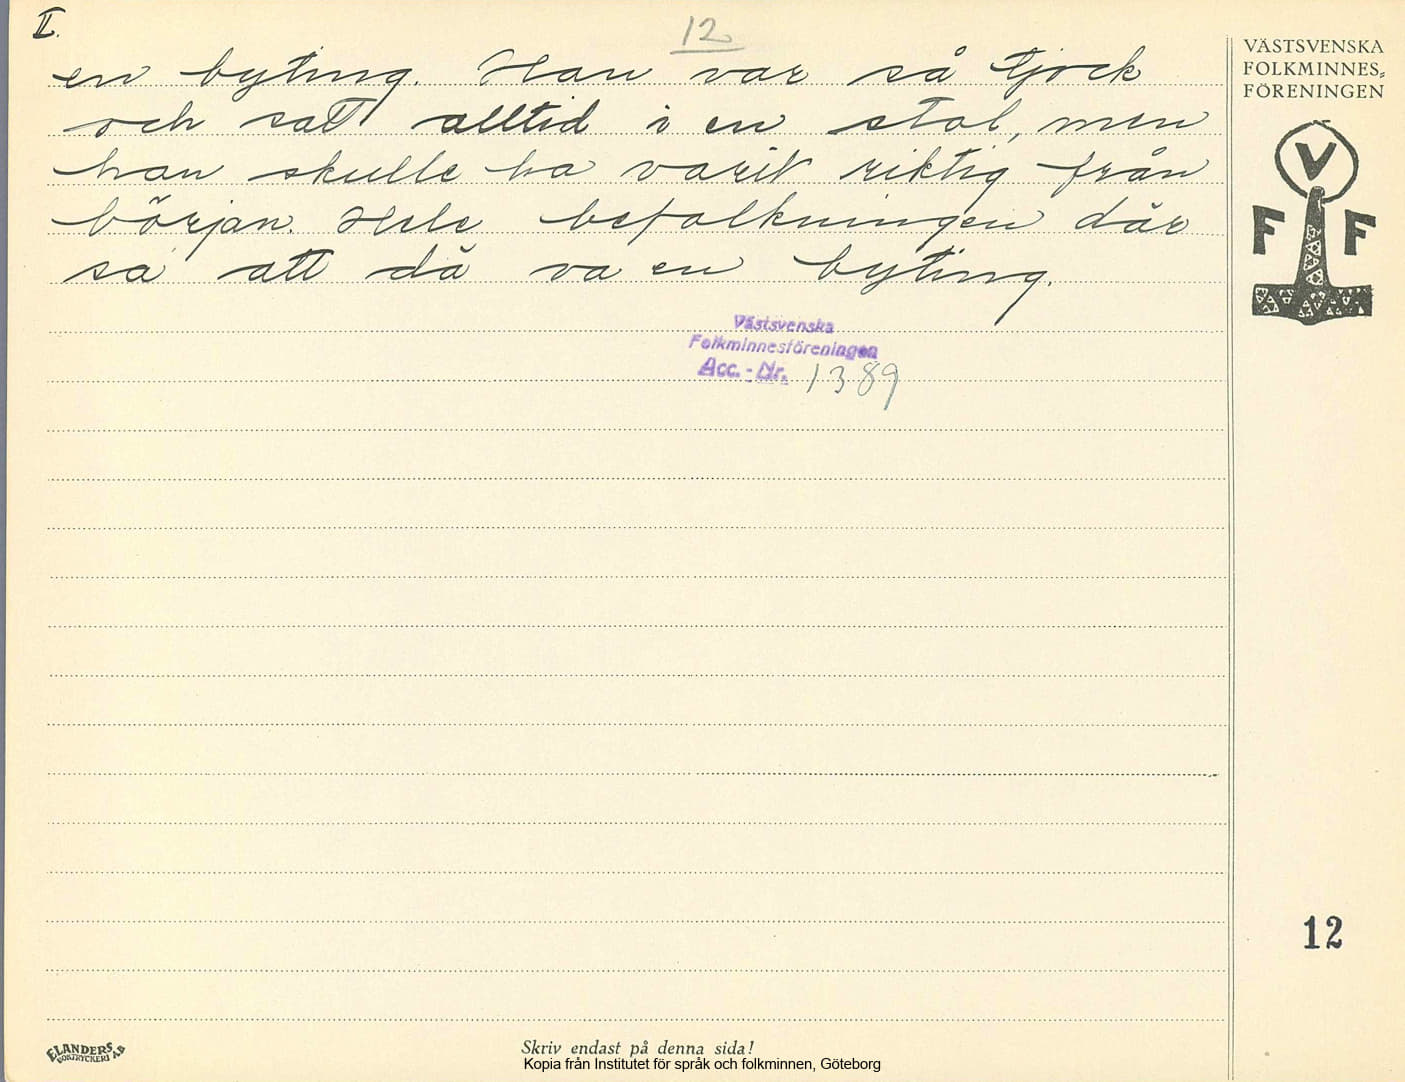 II.
12
en byting. Han var så tjock
och satt alltid i en stol, men
han skulle ha varit riktig från
början. Hele befolkningen där
sa att då va en byting.
Västsvenska
Folkminnesföreningen
Acc. - Nr. 1389
VÄSTSVENSKA
FOLKMINNES-
FÖRENINGEN
V
F F
12
ELANDERS
BOKTRYCKERI AB
Skriv endast på denna sida!
Kopia från Institutet för språk och folkminnen, Göteborg